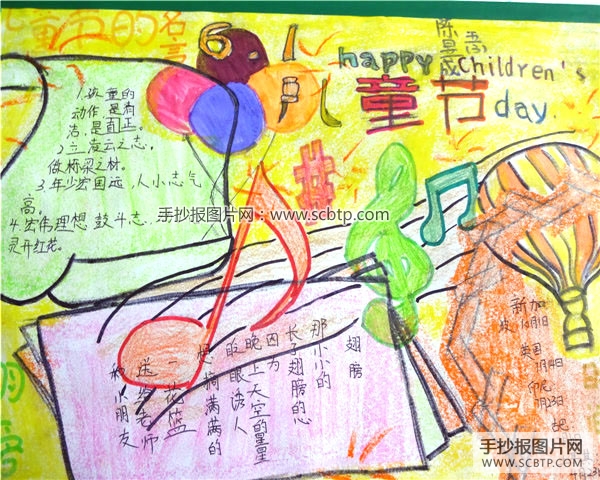 儿童节的名言
6 1
happy Children's
儿童节 day
1.孩童的
动作,是
洁,是
正。
2.立凌云之志,
做栋梁之材。
3.年少宏图远,人小志气
高。
4.宏伟理想鼓斗志,
灵开红花。
手抄报图片网:www.scbtp.com
翅膀
那小小的
长了翅膀的心
因为
晚上天空的星星
眨眼诱人
想摘满满的
一花篮
送给老师
和小朋友
新加
10月1日
英国
印尼
月23日
手抄报图片网
WWW.SCBTP.COM